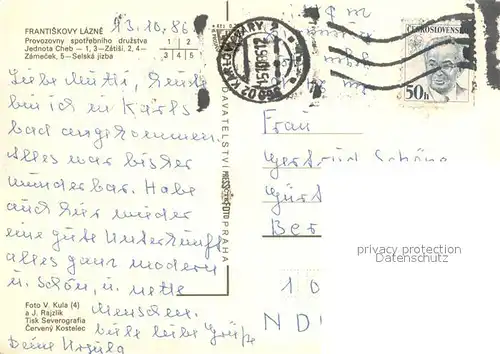 FRANTIŠKOVY LÁZNĚ
Provozovny spotřebního družstva
Jednota Cheb — 1, 3–Zátiší, 2, 4–
Zámeček, 5–Selská jizba
1 2
3 4 5
13.10.86
Liebe Mutti, heute
bin ich in Karls
bad angekommen.
Alles war bisher
wunderbar. Habe
auch hier wieder
eine gute Unterkunft
alles ganz modern
u. schön, u. nette
Menschen.
liebe Grüße
Deine Ursula
Foto V. Kula (4)
a J. Rajzlík
Tisk Severografia
Červený Kostelec
PRAHA
360 02 KARLOVY VARY 2
ČESKOSLOVENSKO
50h
Frau
Gertrud Schöne
Ber
privacy protection
1 0
N D